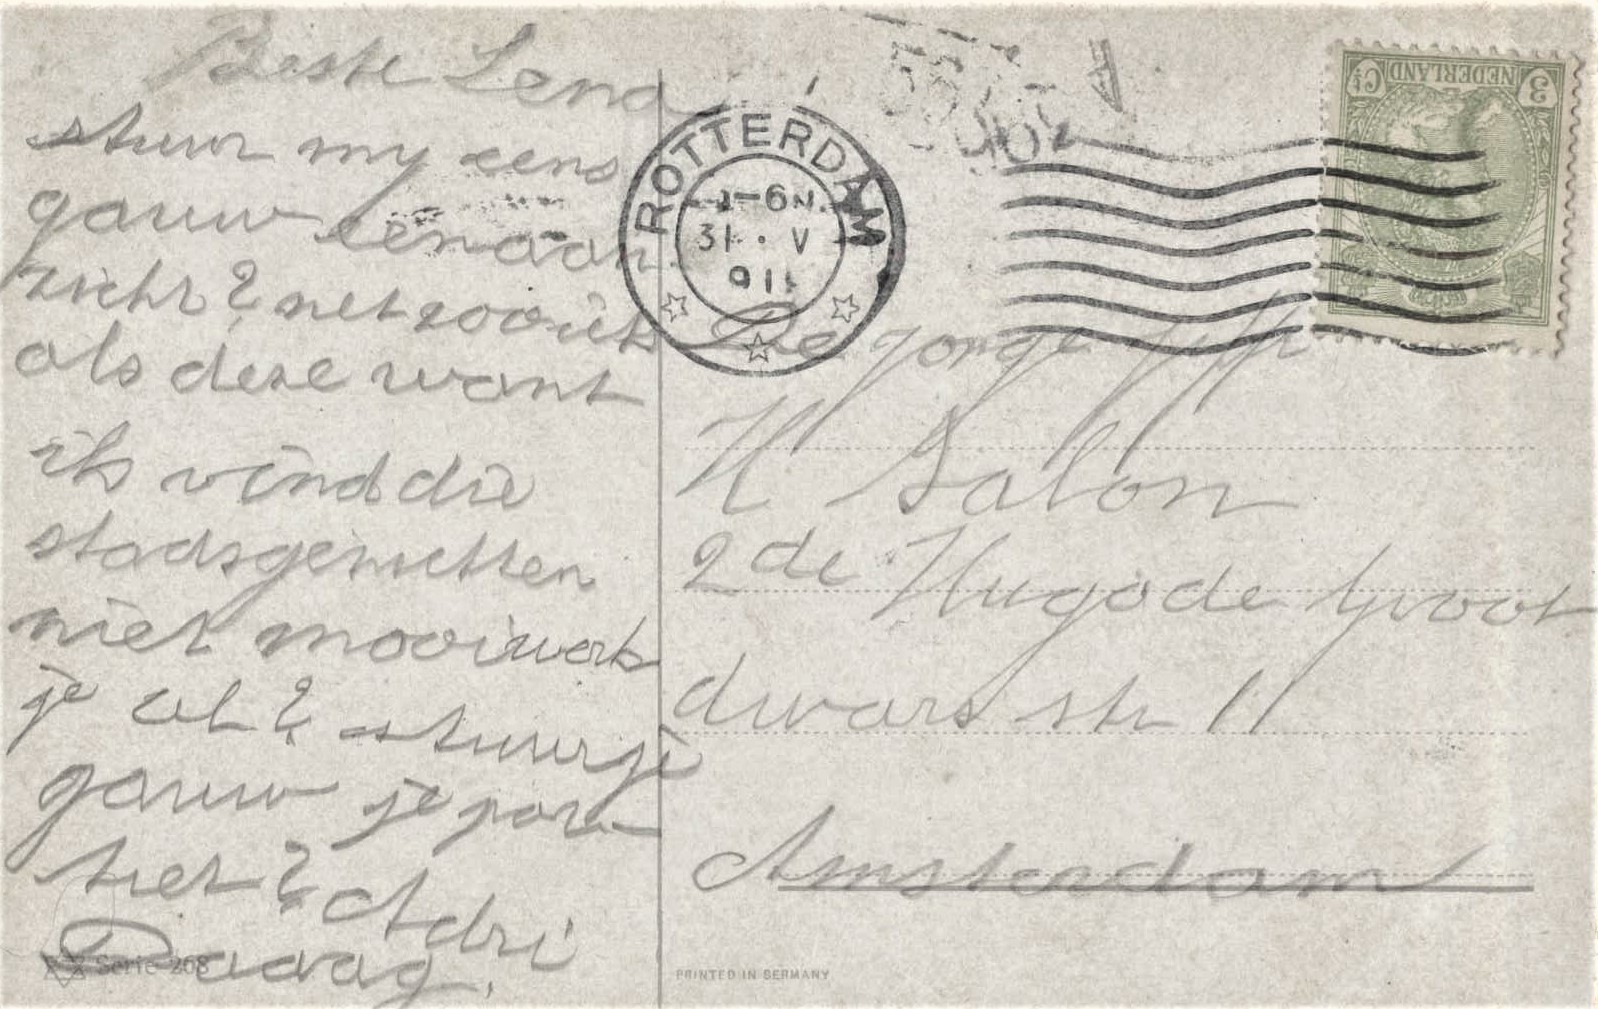 Beste Lena
stuur my eens
gauw een aan
zicht? net zoo iets
als deze want
ik vind die
stadsgezichten
niet mooi werk
je al? stuur je
gauw je por-
tret? Adri
Daaag.
Serie 268
ROTTERDAM
-6N.
31. V
911
NEDERLAND
3 Ct
De Jonge Juffr
H Salon
2de Hugo de Groot
dwars str 11
Amsterdam
PRINTED IN GERMANY